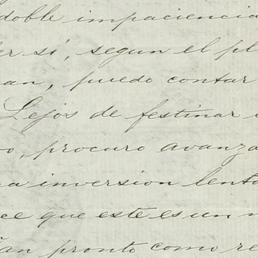 doble impaciencia
si, segun el
an, puedo contar
Lejos de festinar
o, procuro avanza
a inversion lento
ce que este es un
an pronto como re